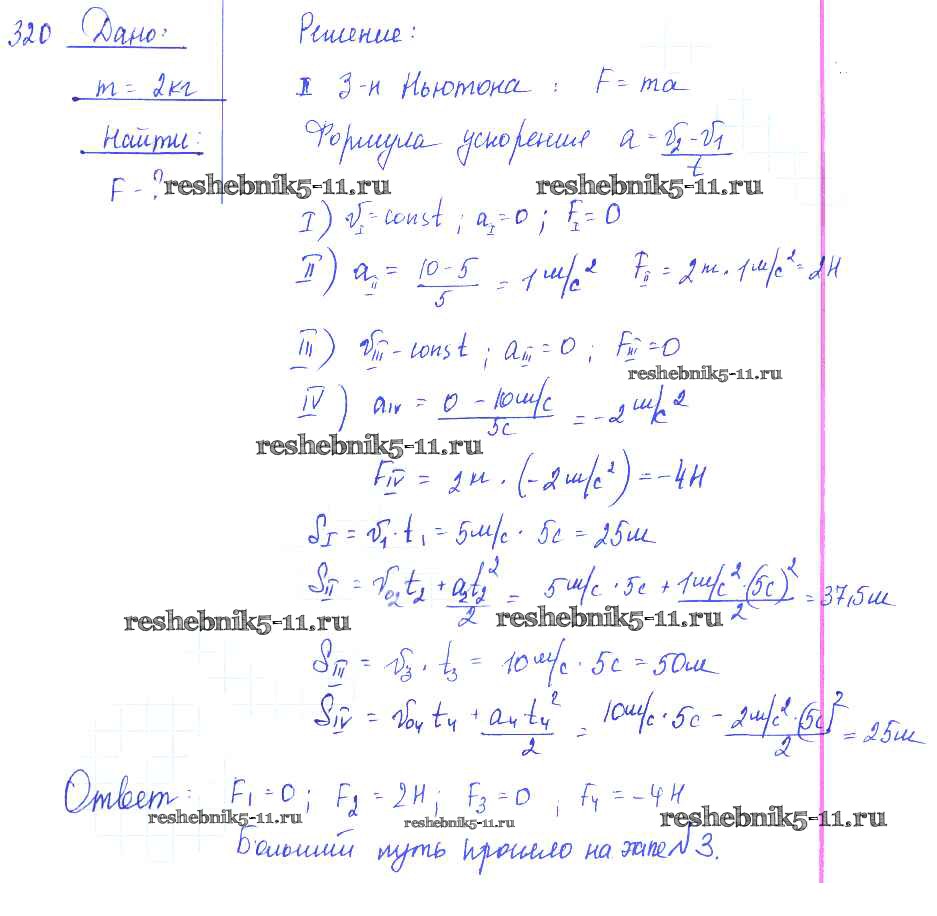 320 Дано: Решение:
m = 2кг II З-н Ньютона : F = ma
Найти: Формула ускорения a = (v₂ - v₁)/t
F - ? reshebnik5-11.ru reshebnik5-11.ru
I) v_I = const ; a_I = 0 ; F_I = 0
II) a_II = (10 - 5)/5 = 1 м/с² F_II = 2кг · 1м/с² = 2Н
III) v_III - const ; a_III = 0 ; F_III = 0
reshebnik5-11.ru
IV) a_IV = (0 - 10м/с)/5с = -2 м/с²
reshebnik5-11.ru
F_IV = 2кг · (-2м/с²) = -4Н
S_I = v₁ · t₁ = 5м/с · 5с = 25м
S_II = v₀₂t₂ + a₂t₂²/2 = 5м/с · 5с + 1м/с² · (5с)²/2 = 37,5м
reshebnik5-11.ru reshebnik5-11.ru
S_III = v₃ · t₃ = 10м/с · 5с = 50м
S_IV = v₀₄t₄ + a₄t₄²/2 = 10м/с · 5с - 2м/с² · (5с)²/2 = 25м
Ответ: F₁ = 0 ; F₂ = 2Н ; F₃ = 0 ; F₄ = -4Н
reshebnik5-11.ru reshebnik5-11.ru reshebnik5-11.ru
Больший путь прошло на этапе №3.